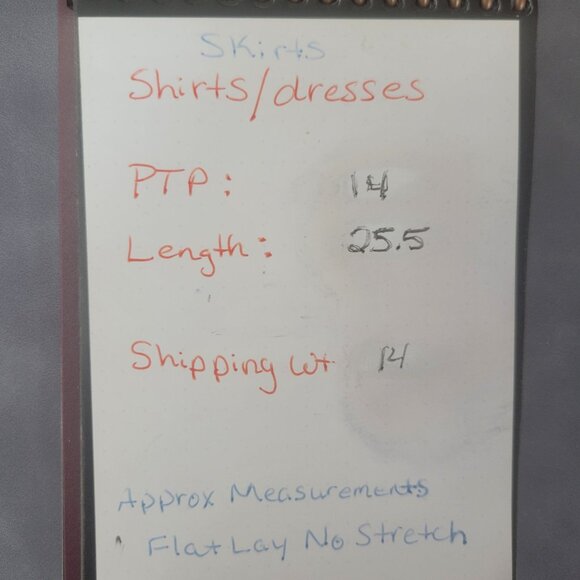 Skirts
Shirts/dresses
PTP: 14
Length: 25.5
Shipping wt 14
Approx Measurements
Flat Lay No Stretch